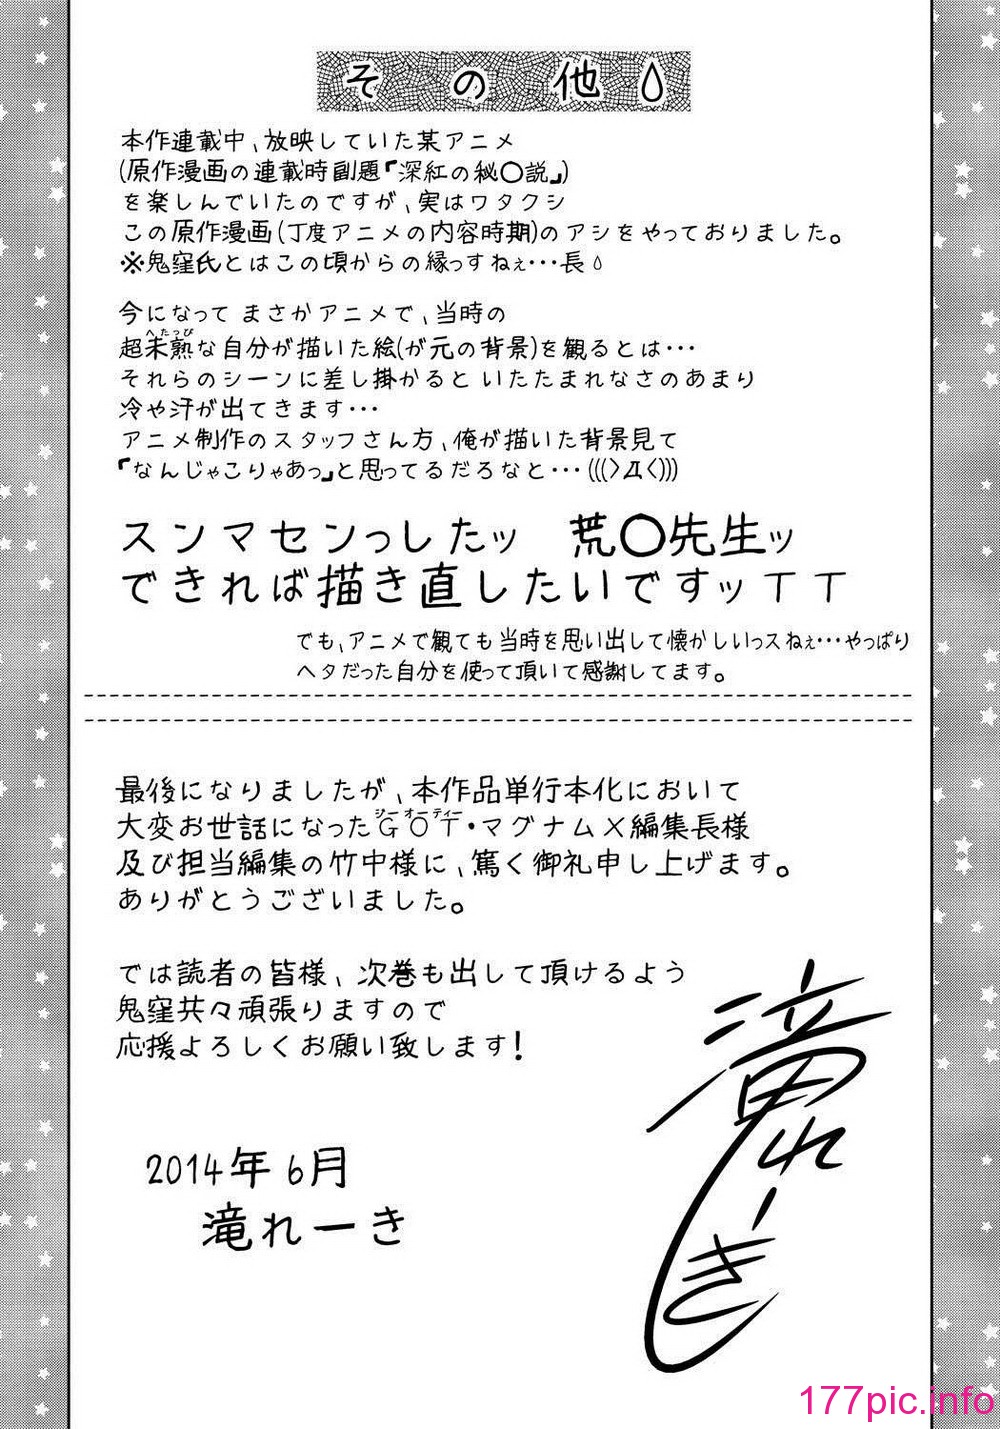 その他
本作連載中、放映していた某アニメ
(原作漫画の連載時副題『深紅の秘〇説』)
を楽しんでいたのですが、実はワタクシ
この原作漫画(丁度アニメの内容時期)のアシをやっておりました。
※鬼窪氏とはこの頃からの縁っすねぇ…長
今になって まさかアニメで、当時の
へたっぴ
超未熟な自分が描いた絵(が元の背景)を観るとは…
それらのシーンに差し掛かると いたたまれなさのあまり
冷や汗が出てきます…
アニメ制作のスタッフさん方、俺が描いた背景見て
『なんじゃこりゃあっ』と思ってるだろなと…(((>Д<)))
スンマセンっしたッ 荒〇先生ッ
できれば描き直したいですッTT
でも、アニメで観ても当時を思い出して懐かしいっスねぇ…やっぱり
ヘタだった自分を使って頂いて感謝してます。
最後になりましたが、本作品単行本化において
ジーオーティー
大変お世話になったGOT・マグナム×編集長様
及び担当編集の竹中様に、篤く御礼申し上げます。
ありがとうございました。
では読者の皆様、次巻も出して頂けるよう
鬼窪共々頑張りますので
応援よろしくお願い致します!
2014年6月
滝れーき
滝れーき
177pic.info